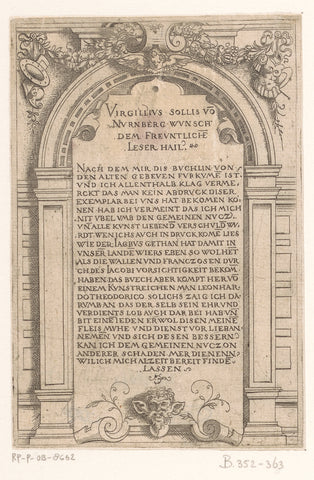 VIRGILIVS SOLLIS VO
NVRNBERG WVNSCH
DEM FREVNTLICHE
LESER HAIL.
NACH DEM MIR DIS BVCHLIN VON
DEN ALTEN GEBEVEN FVRKVME IST.
VND ICH ALLENTHALB KLAG VERME,
RCKT DAS MAN KEIN ABDRVCK DISER
EXEMPLAR BEI VNS HAT BEKOMEN KO,
NEN HAB ICH VERMEINT DAS ICH MICH
NIT VBEL VMB DEN GEMEINEN NVCZ
VN ALLE KVNST LIEBEND VERSCHVLD WV
RDT. WEN ICHS AVCH IN DRVCK KOME LIES
WIE DER IACBVS GETHAN HAT DAMIT IN
VNSER LANDE WIERS EBEN SO WOL HET
ALS DIE WALLEN VND FRANCZOSEN DVR
CH DES IACOBI VORSICHTIGKEIT BEKOM
HABEN. DAS BVECH ABER KOMPT HER VO
EINEM KVNSTREICHEN MAN LEONHAR
DO THEODORICO. SOLICHS ZAIG ICH DA
RVMB AN DAS DER SELB SEIN EHR VND
VERDIENTS LOB AVCH DAR BEI HAB VN
BIT EINE IEDEN ER WOL DISEN MEINE
FLEIS MVHE VND DIENST VOR LIEB AN,
NEMEN VND SICH DESEN BESSERN
KAN ICH DEM GEMEINEN NVCZ ON
ANDERER SCHADEN MER DIENEN
WIL ICH MICH ALZEIT BEREIT FINDE
LASSEN
RP-P-OB-8662
B. 352-363